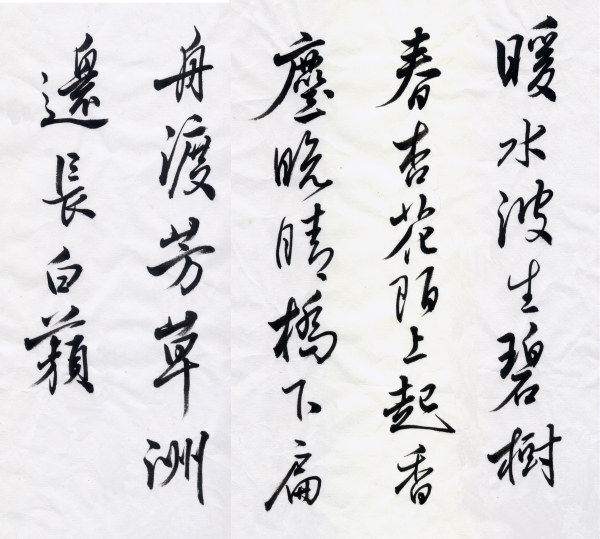 暖水波生碧樹
春杏花陌上起香
塵晚晴橋下扁
舟渡芳草洲
邊長白蘋